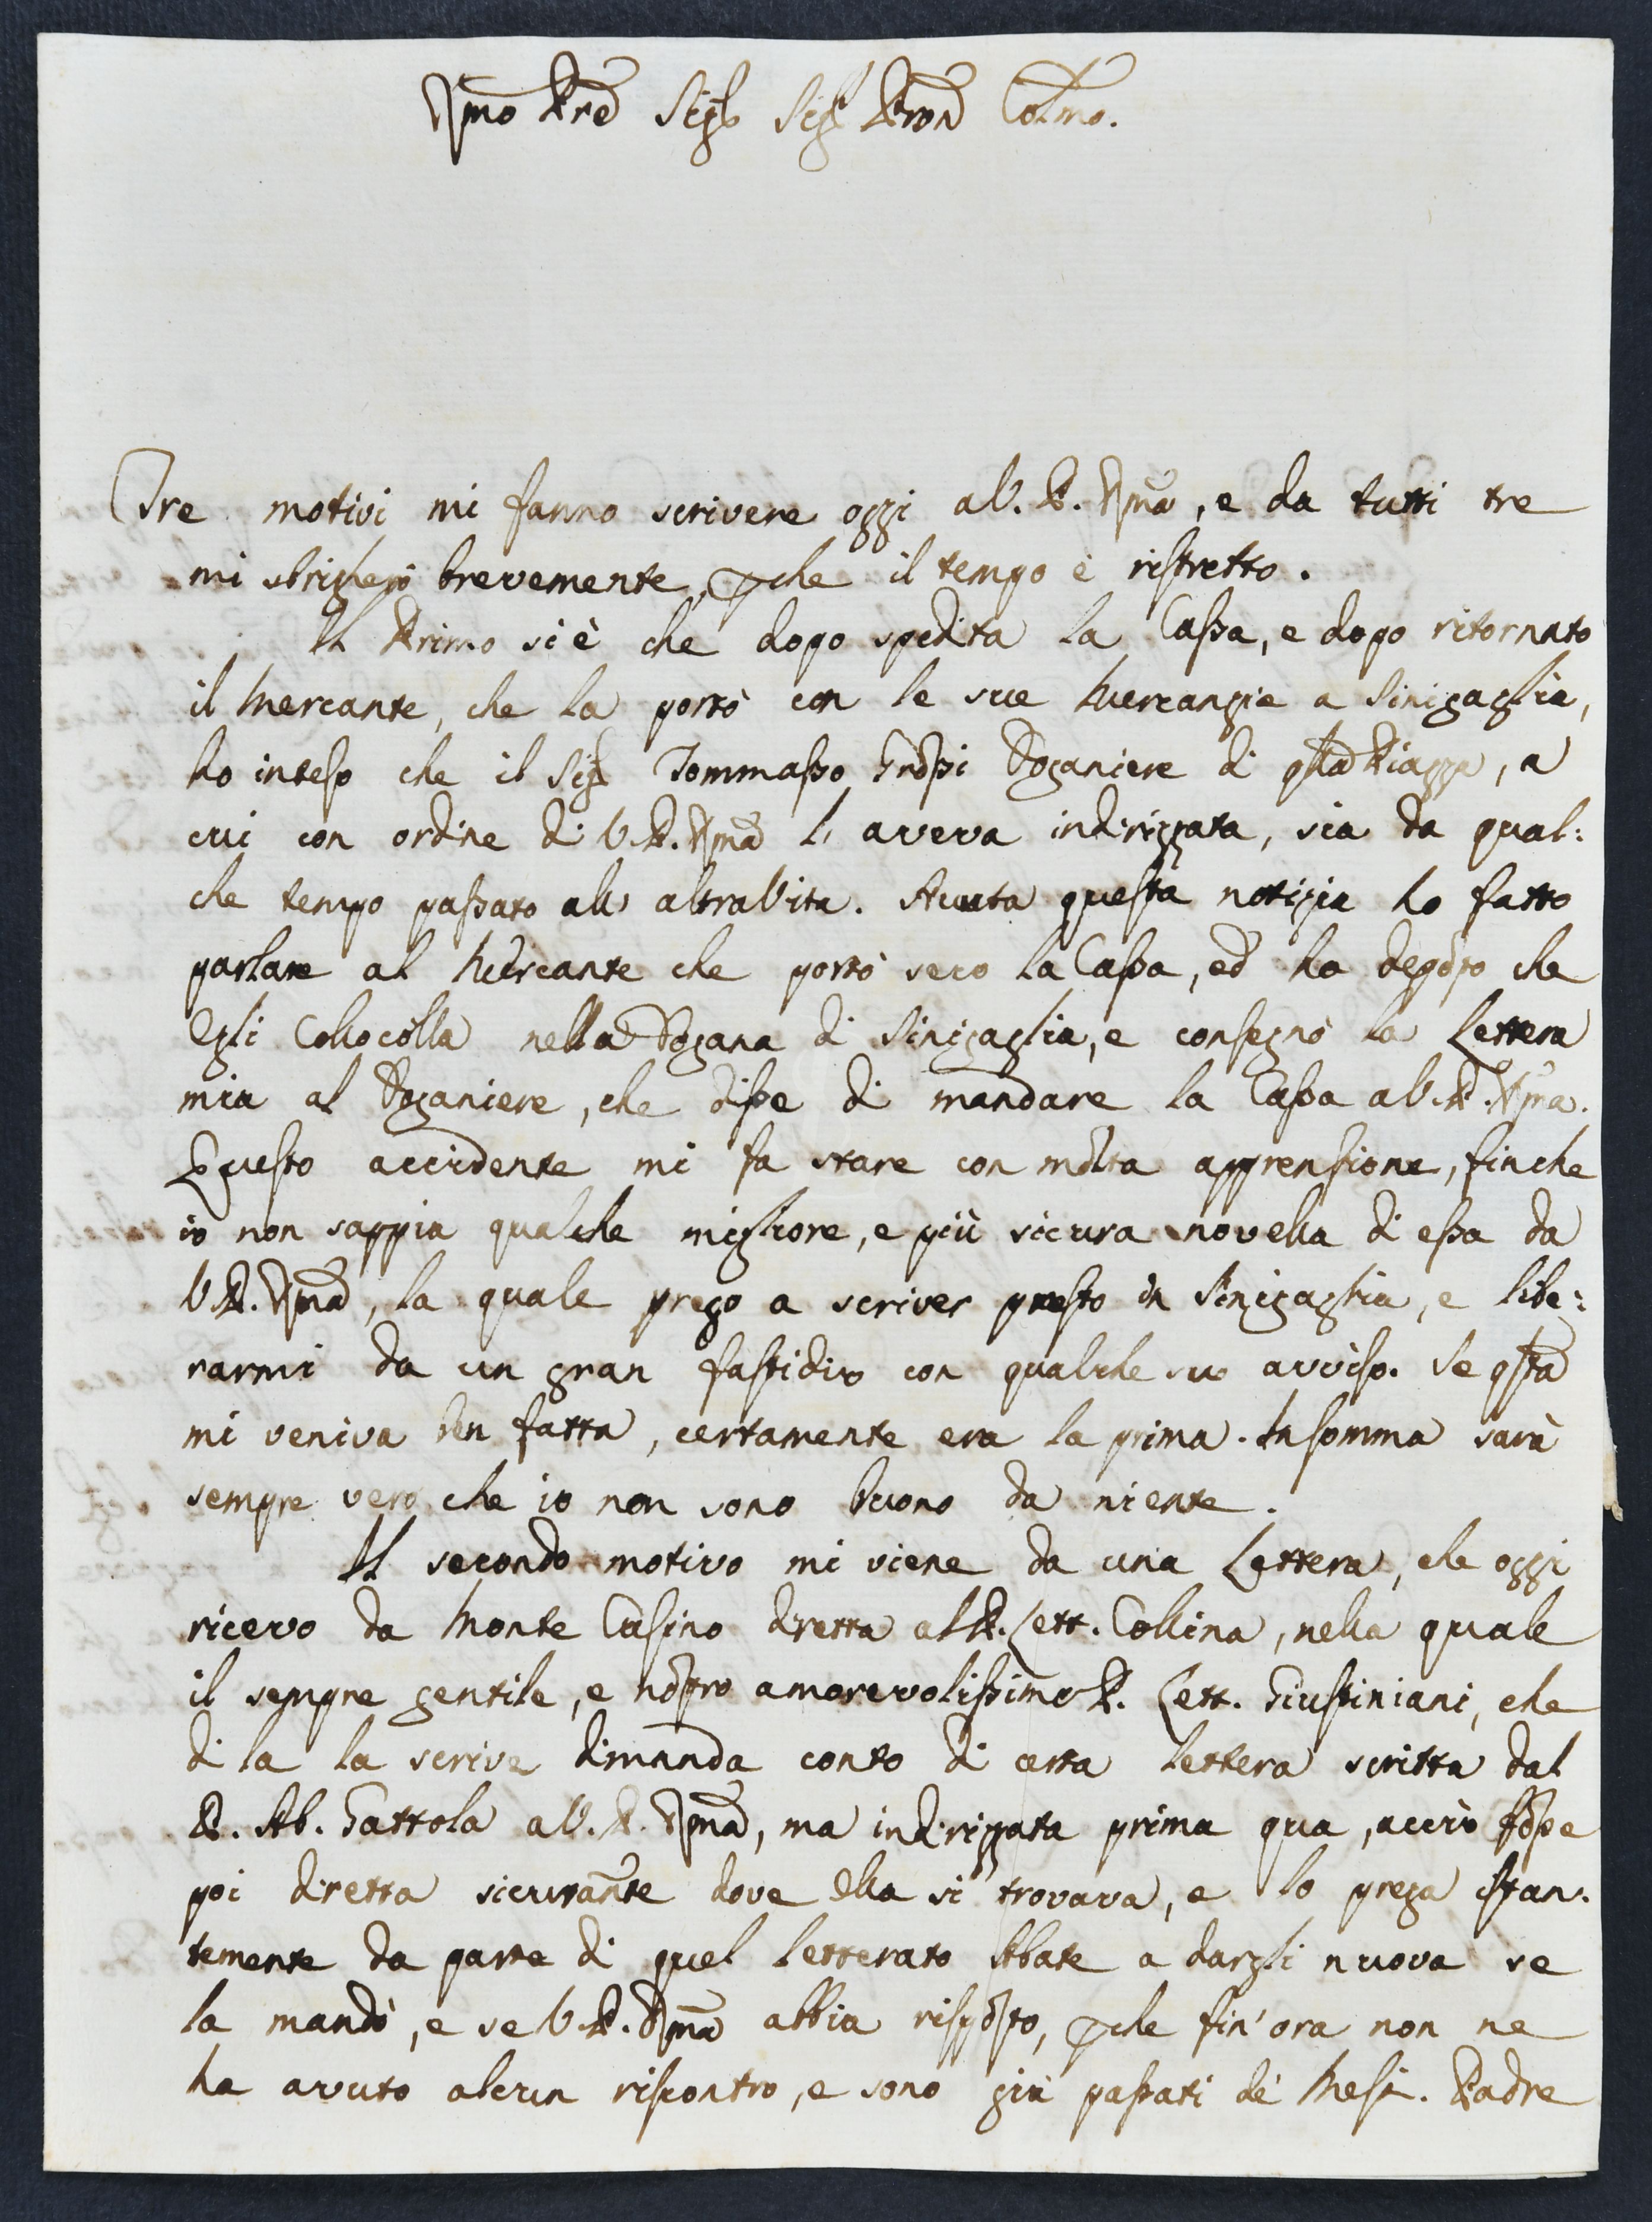 Rmo Pre Sigr Sigr Pron Colmo.
Tre motivi mi fanno scrivere oggi a V. P. Rma, e da tutti tre
mi sbrigherò brevemente, pche il tempo è ristretto.
Il Primo si è che dopo spedita la Cassa, e dopo ritornato
il Mercante, che la portò con le sue Mercanzie a Sinigaglia,
ho inteso che il Sigr Tommasso Grossi Doganiere di qsta Piazza, a
cui con ordine di V. P. Rma l' aveva indirizzata, sia da qual:
che tempo passato all' altra Vita. Avuta questa notizia ho fatto
parlare al Mercante che portò seco la Cassa, ed ha deposto che
Egli collocolla nella Dogana di Sinigaglia, e consegnò la Lettera
mia al Doganiere, che disse di mandare la Cassa a V. P. Rma.
Questo accidente mi fa stare con molta apprensione, finche
io non sappia qualche migliore, e più sicura novella di essa da
V. P. Rma, la quale prego a scriver presto in Sinigaglia, e libe:
rarmi da un gran fastidio con qualche suo avviso. Se qsta
mi veniva ben fatta, certamente era la prima. Insomma sarà
sempre vero che io non sono buono da niente.
Il secondo motivo mi viene da una Lettera, che oggi
ricevo da Monte Casino diretta al P. Lett. Collina, nella quale
il sempre gentile, e nostro amorevolissimo P. Lett. Giustiniani, che
di la la scrive dimanda conto di certa lettera scritta dal
P. Ab. Gattola a V. P. Rma, ma indirizzata prima qua, acciò fosse
poi diretta sicuramte dove Ella si trovava, e lo prega istan:
temente da parte di quel letterato Abate a dargli nuova se
la mandò, e se V. P. Rma abbia risposto, pche fin' ora non ne
ha avuto alcun riscontro, e sono già passati de' Mesi. Padre